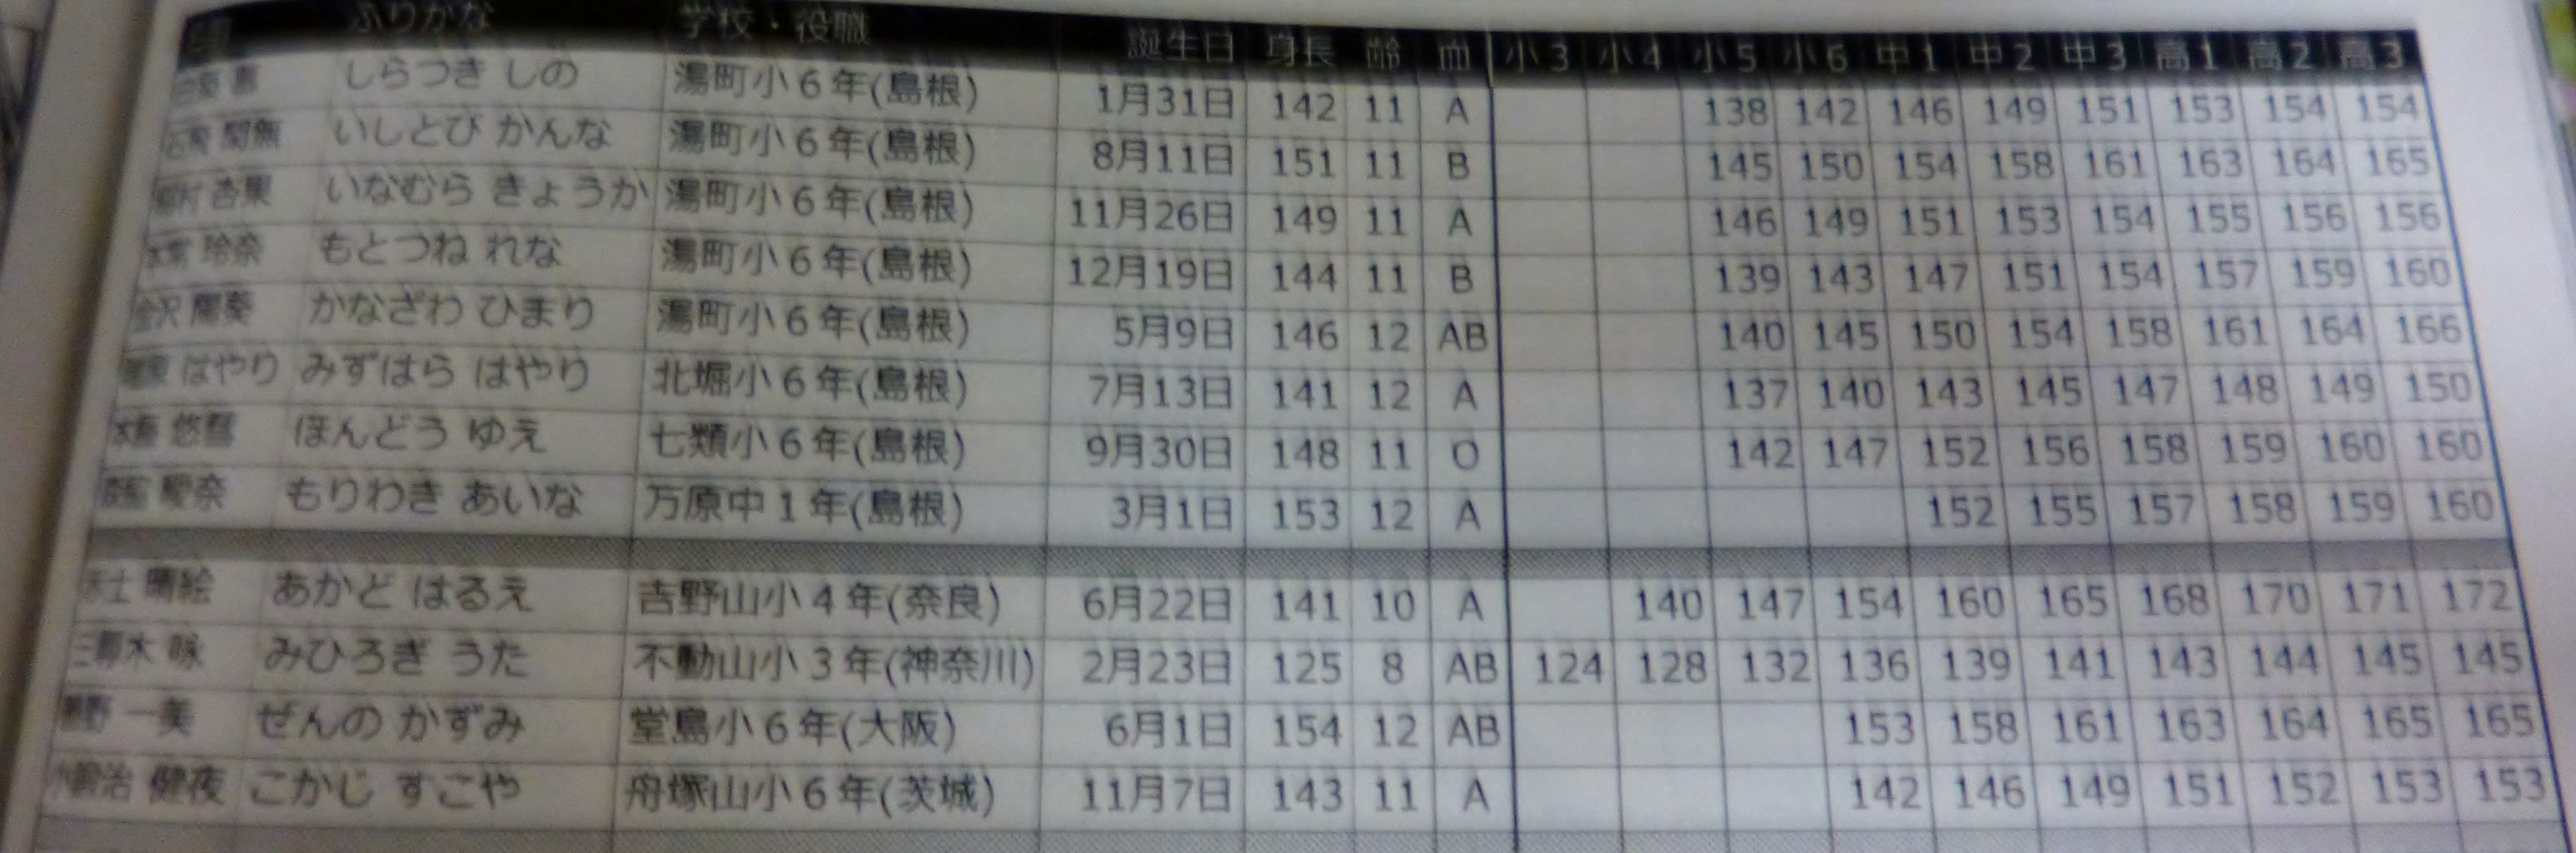 ふりがな 学校・役職 誕生日 身長 齢 血 小3 小4 小5 小6 中1 中2 中3 高1 高2 高3
しらつき しの 湯町小6年(島根) 1月31日 142 11 A 138 142 146 149 151 153 154 154
石飛 閑無 いしとび かんな 湯町小6年(島根) 8月11日 151 11 B 145 150 154 158 161 163 164 165
稲村 杏果 いなむら きょうか 湯町小6年(島根) 11月26日 149 11 A 146 149 151 153 154 155 156 156
玲奈 もとつね れな 湯町小6年(島根) 12月19日 144 11 B 139 143 147 151 154 157 159 160
金沢 かなざわ ひまり 湯町小6年(島根) 5月9日 146 12 AB 140 145 150 154 158 161 164 166
はやり みずはら はやり 北堀小6年(島根) 7月13日 141 12 A 137 140 143 145 147 148 149 150
本藤 悠彗 ほんどう ゆえ 七類小6年(島根) 9月30日 148 11 O 142 147 152 156 158 159 160 160
もりわき あいな 万原中1年(島根) 3月1日 153 12 A 152 155 157 158 159 160
晴絵 あかど はるえ 吉野山小4年(奈良) 6月22日 141 10 A 140 147 154 160 165 168 170 171 172
三尋木 咏 みひろぎ うた 不動山小3年(神奈川) 2月23日 125 8 AB 124 128 132 136 139 141 143 144 145 145
野 一美 ぜんの かずみ 堂島小6年(大阪) 6月1日 154 12 AB 153 158 161 163 164 165 165
小鍛治 健夜 こかじ すこや 舟塚山小6年(茨城) 11月7日 143 11 A 142 146 149 151 152 153 153